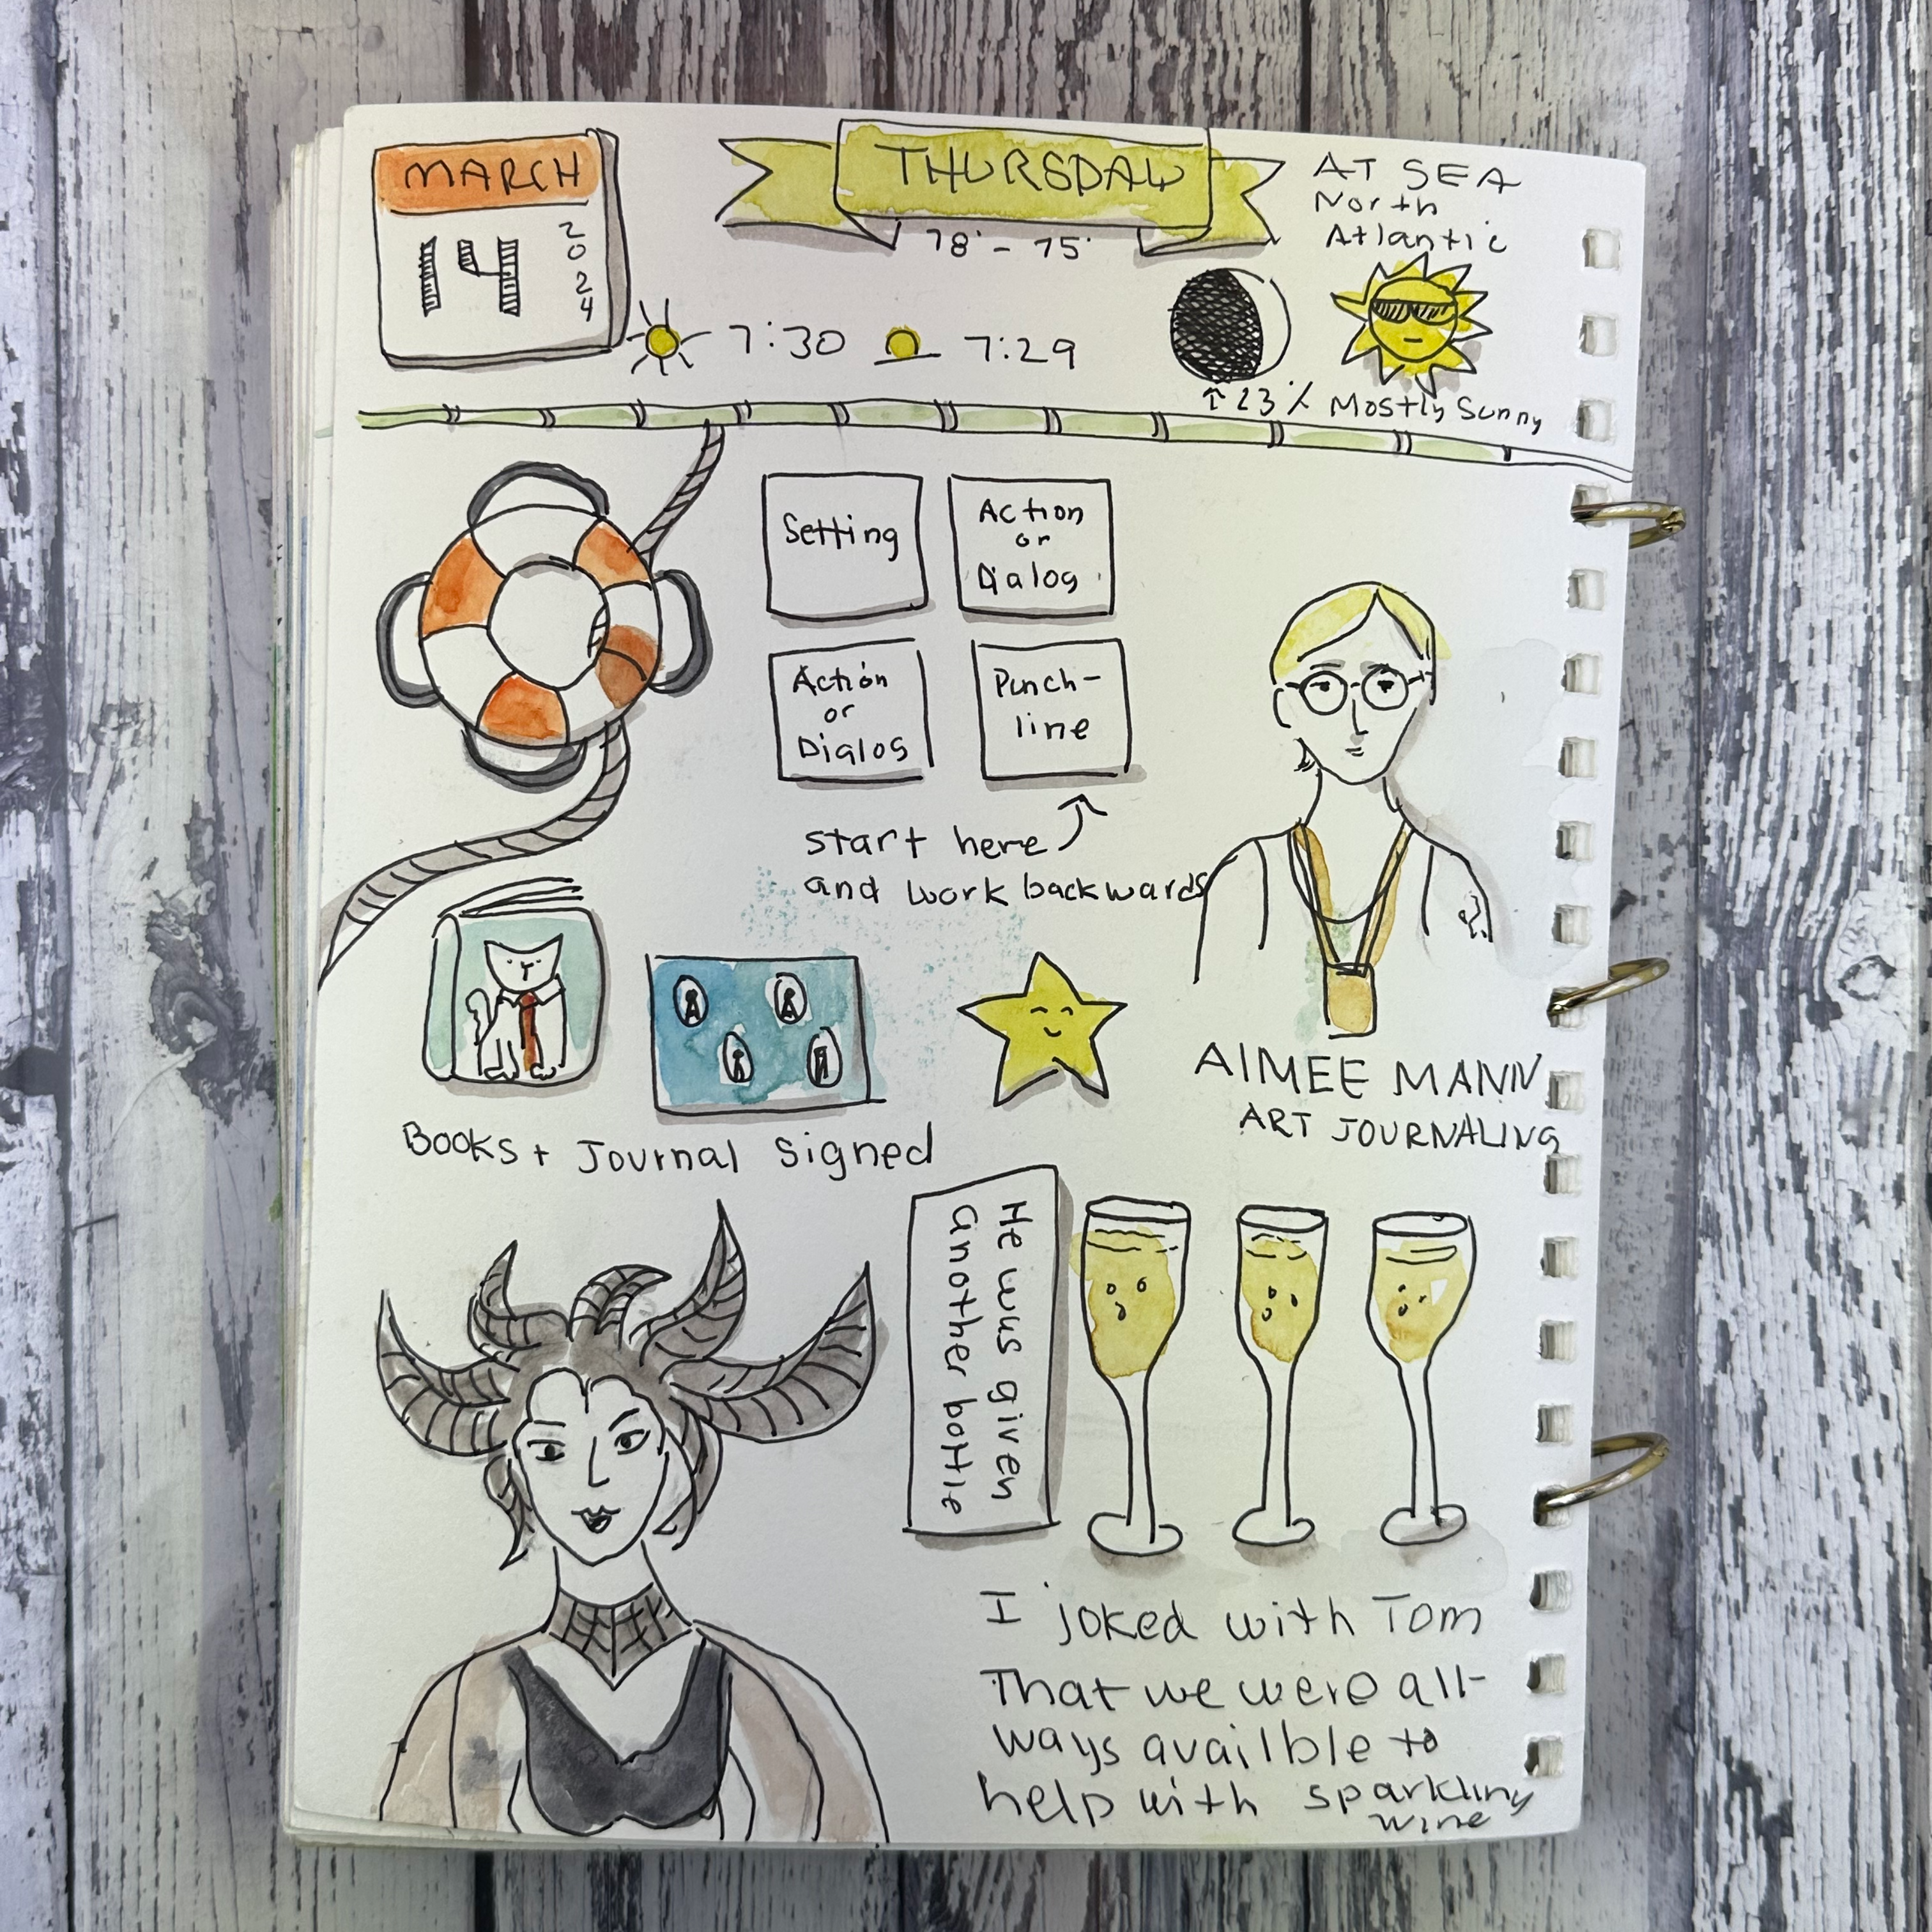 MARCH
14
2024
THURSDAY
78° - 75°
AT SEA
North
Atlantic
7:30
7:29
↑23% Mostly Sunny
Setting
Action
or
Dialog
Action
or
Dialog
Punch-
line
start here
and work backwards
AIMEE MANN
ART JOURNALING
Books + Journal Signed
He was given
another bottle
I joked with Tom
That we were all-
ways availble to
help with sparkling
wine